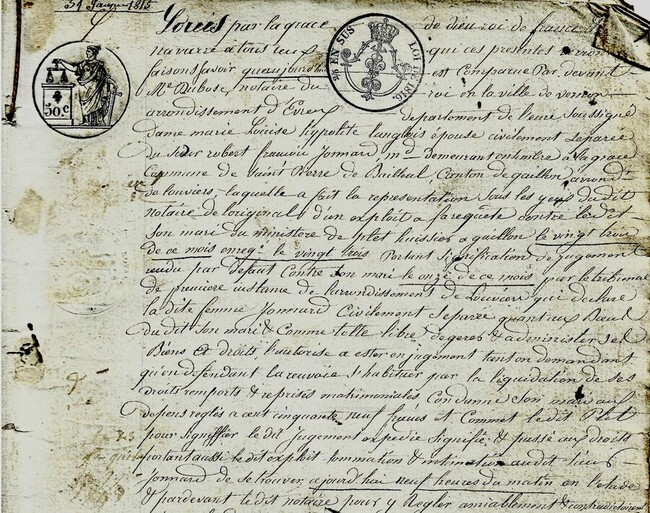 31 Janvier 1815
50.c
25 EN SUS
LOI DE 1816.
Louis par la grace de dieu roi de france &
navarre a tous ceux qui ces presentes verront
faisons savoir que aujourdhui est comparue Par devant
Me Dubosc, notaire du roi en la ville de vernon
arrondissement d'Evreux departement de l'eure Soussigné
dame marie Louise hypolite langlois épouse civilement separée
du Sieur robert francois Jonnard, md. Demeurant ontembre a la grace
Commune de Saint Pierre de Bailleul Canton de gaillon arrondt.
de louviers, laquelle a fait la représentation Sous les yeux du dit
notaire de l'original d'un exploit a Sa requete contre le dit
son mari du ministere de plet huissier a gaillon le vingt trois
de ce mois enregé. le vingt trois Portant Signification de jugement
rendu par defaut Contre Son mari le onze de ce mois par le tribunal
de premiere instance de l'arrondissement de Louviers qui declare
la dite femme Jonnard Civilement Separée quant aux Biens
du dit Son mari & Comme telle libre de gerer & administer Ses
Biens et droits l'autorise a ester en jugement tant en demandant
qu'en defendant la renvoie S'habituer par la liquidation de ses
droits remports & reprises matrimoniales Condamne Son mari aux
depens reglés a cent cinquante neuf francs et Commet le dit Plet
pour Signiffier le dit Jugement expedié Signifié & passé aux droits
portant aussi le dit exploit Sommation & intimation au dit Sieur
Jonnard de se trouver ajourdhui neuf heures du matin en l'etude
& pardevant le dit notaire pour y Regler amiablement & contradictoirement